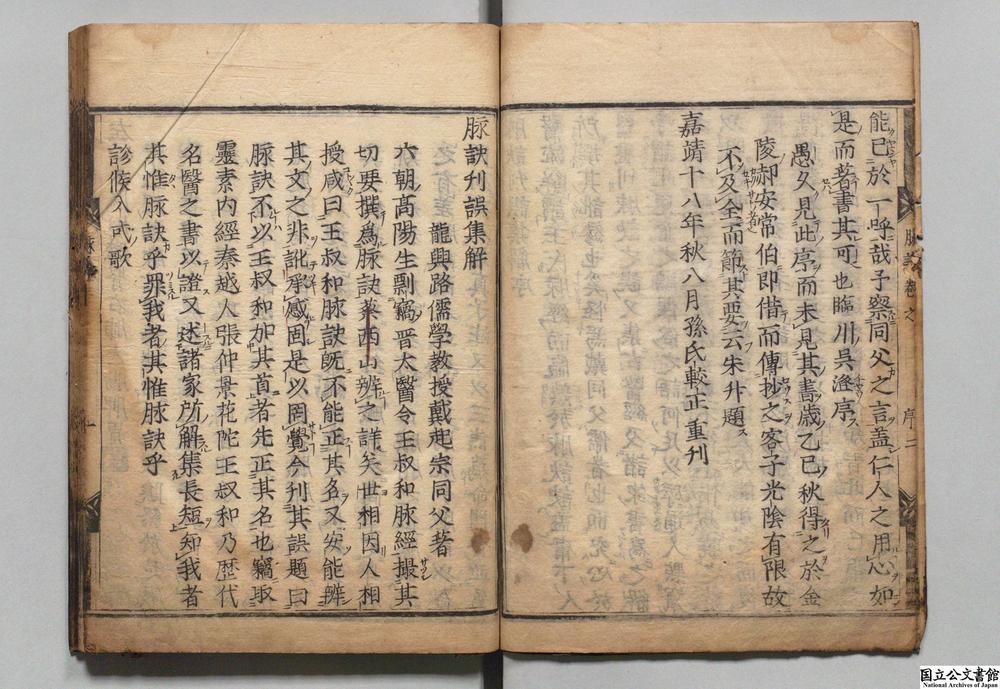 能已於一呼哉子察同父之言盖仁人之用心如
是而著書其可也臨川吳澄序
愚久見此序而未見其書歳乙巳秋得之於金
陵郝安常伯即借而傳抄之客子光陰有限故
不及全而節其要云朱升題
嘉靖十八年秋八月孫氏較正重刊
脉訣刋誤集解
龍興路儒學教授戴起宗同父著
六朝高陽生剽竊晋太醫令王叔和脉經撮其
切要撰爲脉訣蔡西山辨之詳矣世相因人相
授咸曰王叔和脉訣既不能正其名又安能辨
其文之非訛承惑固是以罔覺今刋其誤題曰
脉訣不以王叔和加其首者先正其名也竊取
靈素内經秦越人張仲景花陀王叔和乃歴代
名醫之書以證又述諸家所解集長短知我者
其惟脉訣乎罪我者其惟脉訣乎
診候入式歌
序二
国立公文書館
National Archives of Japan